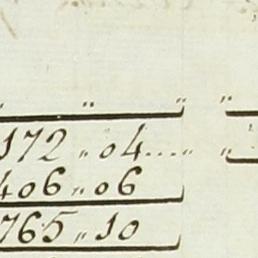 " " " "
172 " 04 .... " "
406 " 06
765 " 10